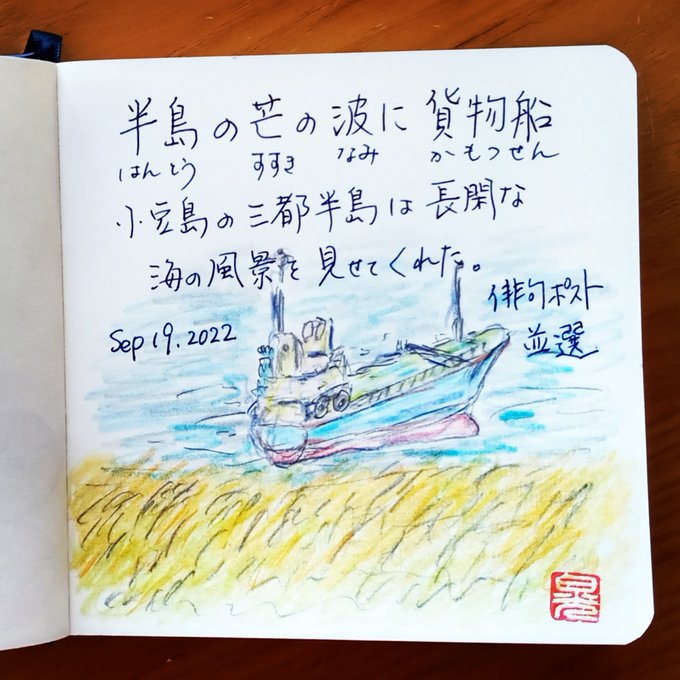 半島の芒の波に貨物船
はんとう すすき なみ かもつせん
小豆島の三都半島は長閑な
海の風景を見せてくれた。
俳句ポスト
並選
Sep 19, 2022